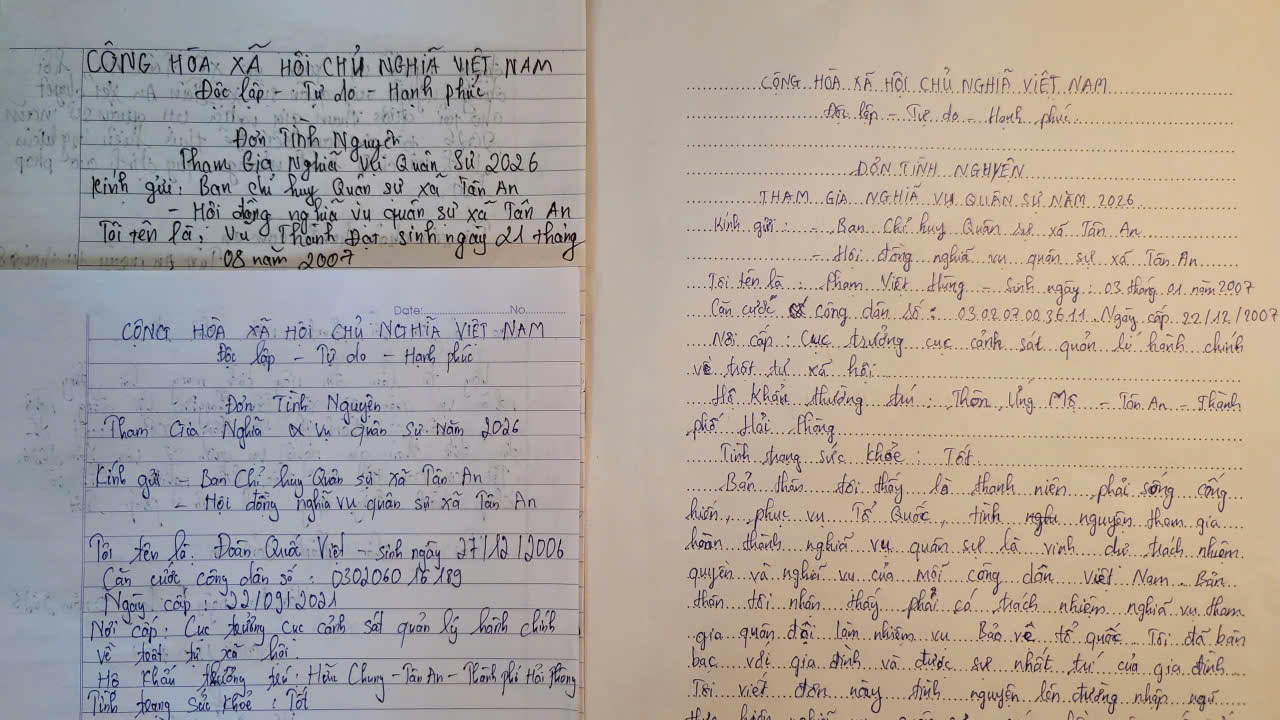 CÔNG HÒA XÃ HỘI CHỦ NGHĨÃ VIỆT NAM
Độc lập - Tự do - Hạnh phúc
Đơn Tình Nguyện
Tham Gia Nghĩã Vụ Quân Sự 2026
Kính gửi: Ban chỉ huy Quân sự xã Tân An
- Hội đồng nghĩã vụ quân sự xã Tân An
Tôi tên là: Vũ Thành Đạt sinh ngày 21 tháng
08 năm 2007
Date: No.
CỘNG HÒA XÃ HỘI CHỦ NGHĨÃ VIỆT NAM
Độc lập - Tự do - Hạnh phúc
Đơn Tình Nguyện
Tham Gia Nghĩa vụ quân sự Năm 2026
Kính gửi - Ban Chỉ huy Quân sự xã Tân An
- Hội đồng nghĩã vụ quân sự xã Tân An
Tôi tên là: Đoàn Quốc Việt - sinh ngày 27/12/2006
Căn cước công dân số: 0302060 16189
Ngày cấp: 22/09/2021
Nơi cấp: Cục trưởng cục cảnh sát quản lý hành chính
về trật tự xã hội.
Hộ khẩu thường trú: Hữu Chung - Tân An - Thành phố Hải Phòng
Tình trạng sức khoẻ: Tốt
CỘNG HÒA XÃ HỘI CHỦ NGHĨÃ VIỆT NAM
Độc lập - Tự do - Hạnh phúc.
ĐƠN TÌNH NGUYỆN
THAM GIA NGHĨÃ VỤ QUÂN SỰ NĂM 2026
Kính gửi: - Ban Chỉ huy Quân sự xã Tân An
- Hội đồng nghĩa vụ quân sự xã Tân An
Tôi tên là: Phạm Việt Hùng - Sinh ngày: 03 tháng 01 năm 2007
Căn cước công dân số: 030207003611. Ngày cấp 22/12/2007
Nơi cấp: Cục trưởng cục cảnh sát quản lí hành chính
về trật tự xã hội.
Hộ khẩu thường trú: Thôn Ứng Mộ - Tân An - Thành
phố Hải Phòng
Tình trạng sức khoẻ: Tốt.
Bản thân tôi thấy là thanh niên phải sống cống
hiến, phục vụ Tổ Quốc, tình nguyện tham gia
hoàn thành nghĩa vụ quân sự là vinh dự trách nhiệm
quyền và nghĩa vụ của mỗi công dân Việt Nam. Bản
thân tôi nhận thấy phải có trách nhiệm nghĩa vụ tham
gia quân đội làm nhiệm vụ Bảo vệ tổ quốc. Tôi đã bàn
bạc với gia đình và được sự nhất trí của gia đình.
Tôi viết đơn này tình nguyện lên đường nhập ngũ